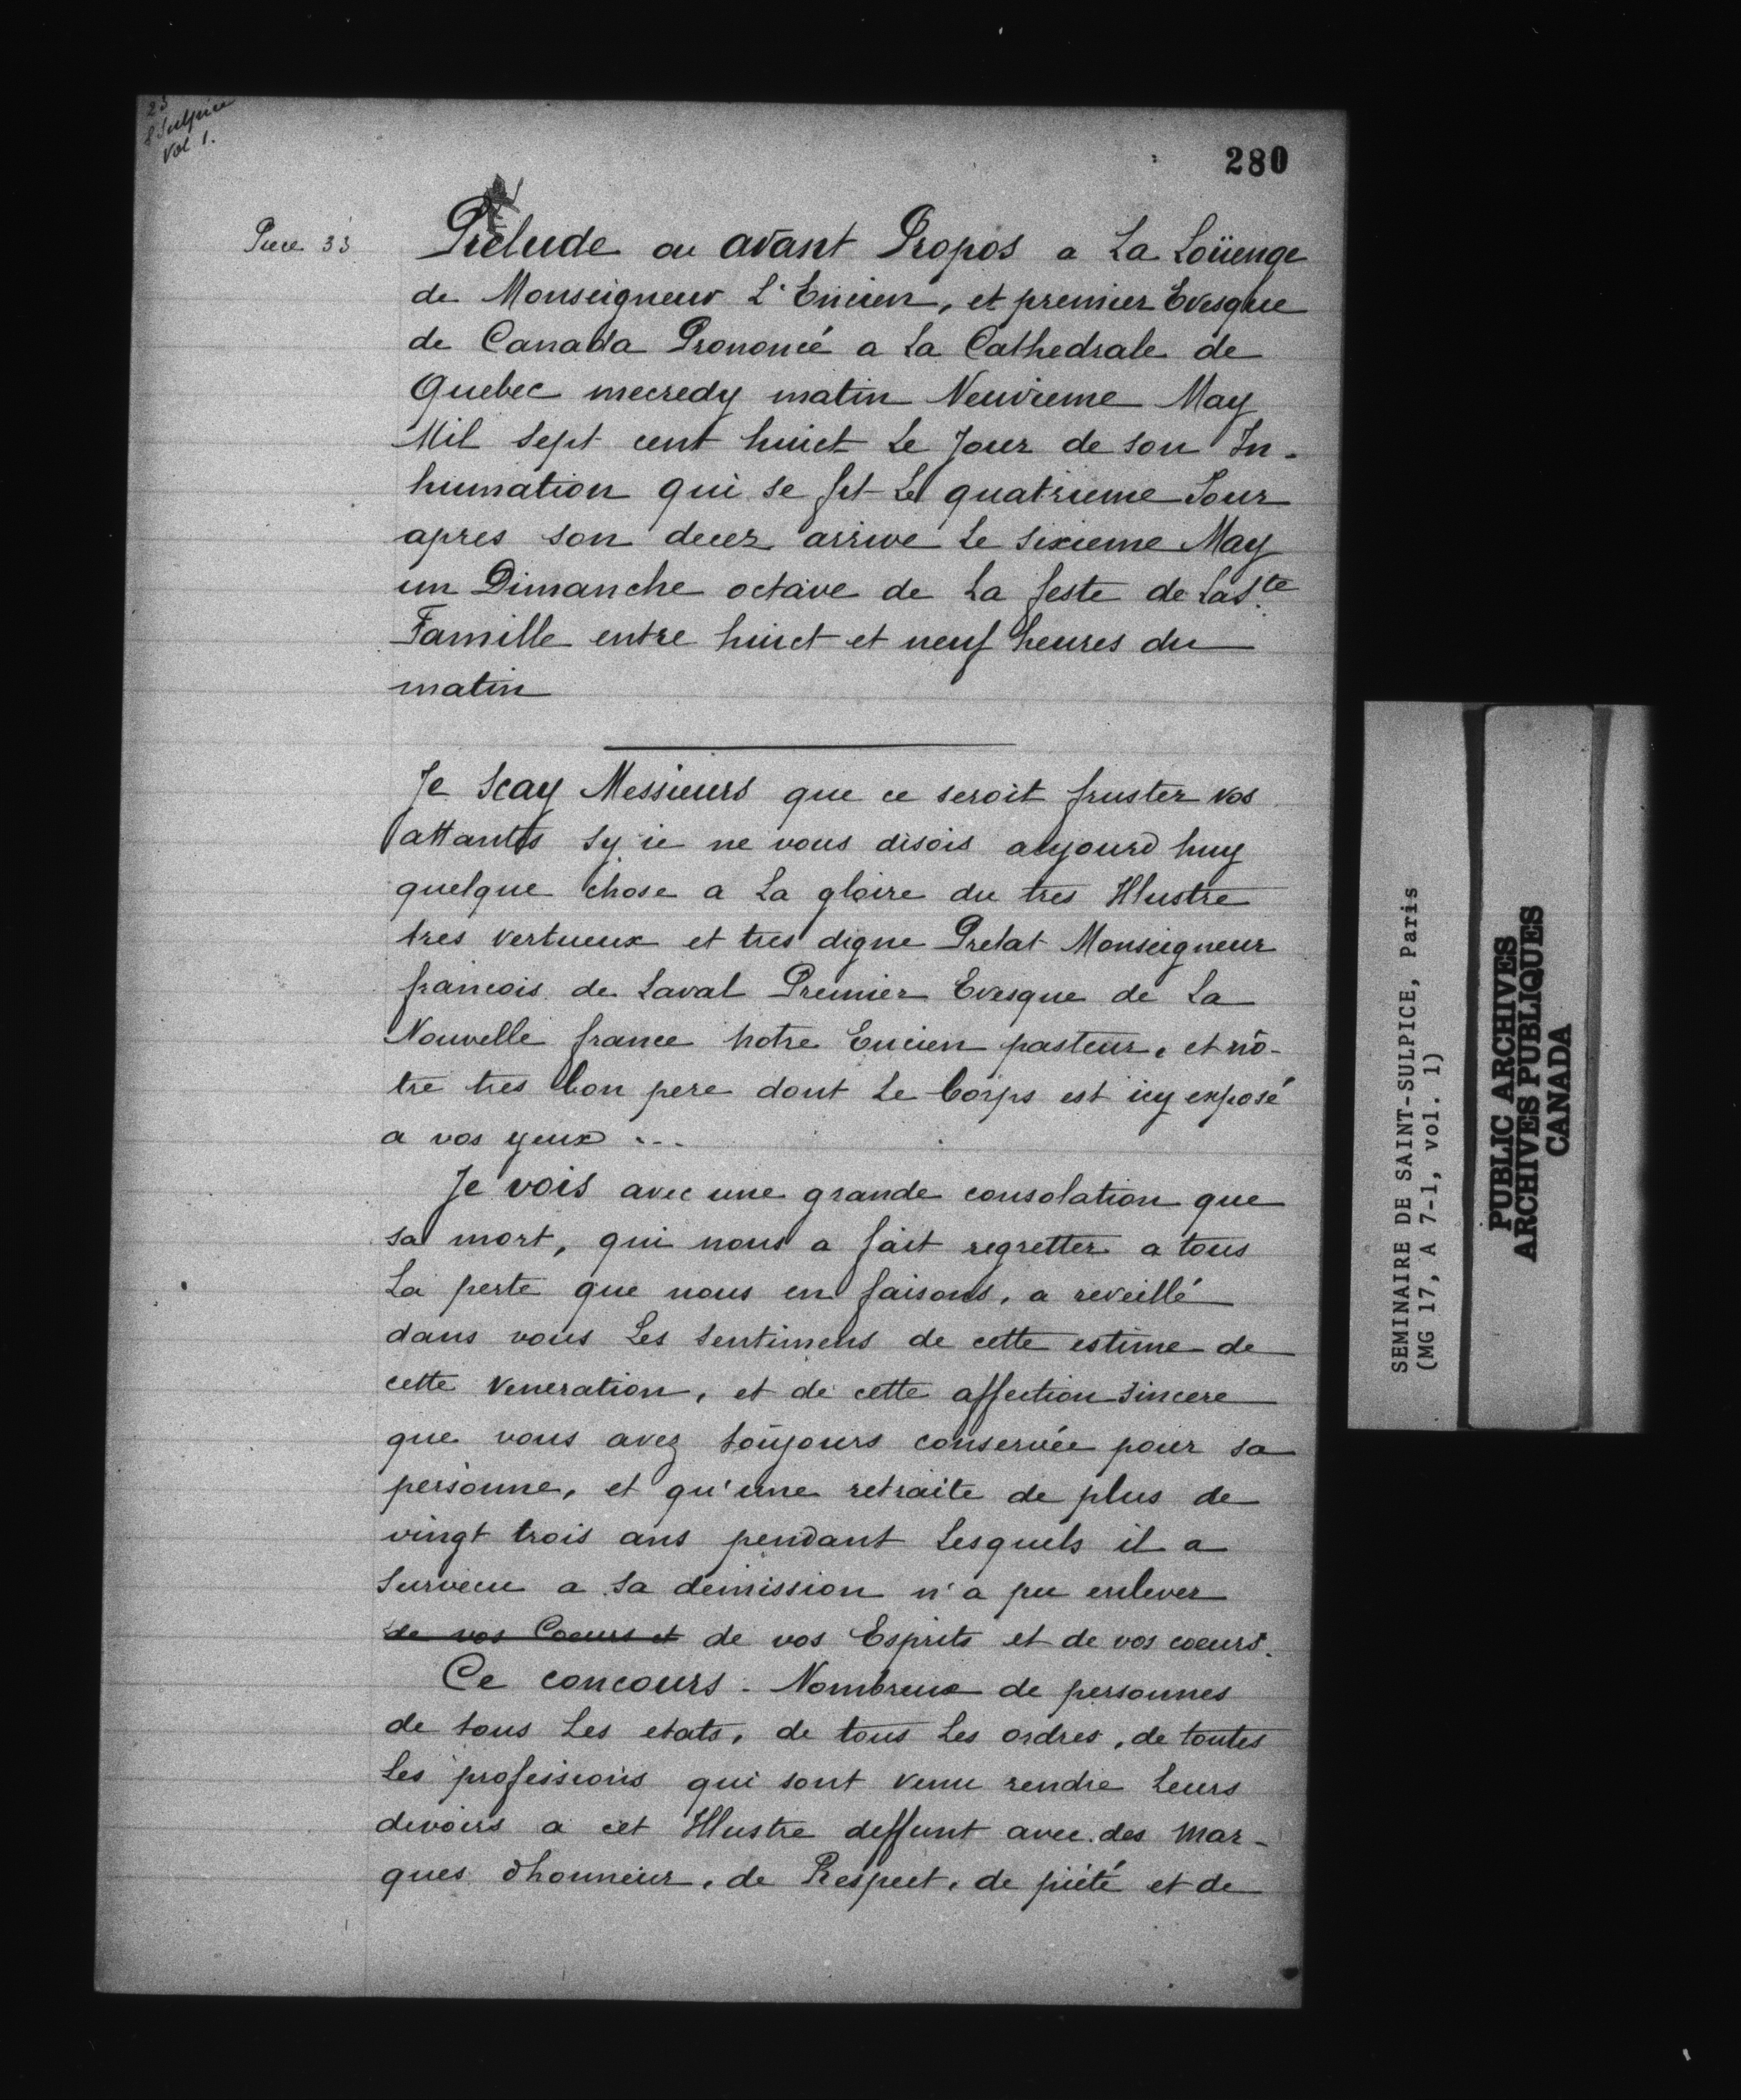 23
S Sulpice
Vol 1.
280
Piece 33
Prelude ou avant Propos a La Loüenge
de Monseigneur L'Encien, et premier Evesque
de Canada Prononcé a La Cathedrale de
Quebec mecredy matin Neuvieme May
Mil sept cent huict Le Jour de son In-
humation qui se fit Le quatrieme Jour
apres son decez arrivé Le sixieme May
un Dimanche octave de La feste de La Ste
Famille entre huict et neuf heures du
matin
Je Scay Messieurs que ce seroit fruster vos
attantes sy ie ne vous disois aujourd huy
quelque chose a La gloire du tres Illustre
tres vertueux et tres digne Prelat Monseigneur
francois de Laval Premier Evesque de La
Nouvelle france notre Encien pasteur, et nô-
tre tres bon pere dont Le Corps est icy exposé
a vos yeux ...
Je vois avec une grande consolation que
sa mort, qui nous a fait regretter a tous
La perte que nous en faisons, a reveillé
dans vous Les sentimens de cette estime de
cette veneration, et de cette affection sincere
que vous avez toûjours conservée pour sa
personne, et qu'une retraite de plus de
vingt trois ans pendant Lesquels il a
survecu a sa demission n'a pu enlever
de vos Coeurs et de vos Esprits et de vos coeurs.
Ce concours Nombreux de personnes
de tous Les etats, de tous Les ordres, de toutes
Les professions qui sont venu rendre Leurs
devoirs a cet Illustre deffunt avec des mar-
ques dhonneur, de Respect, de piété et de
SEMINAIRE DE SAINT-SULPICE, Paris
(MG 17, A 7-1, vol. 1)
PUBLIC ARCHIVES
ARCHIVES PUBLIQUES
CANADA